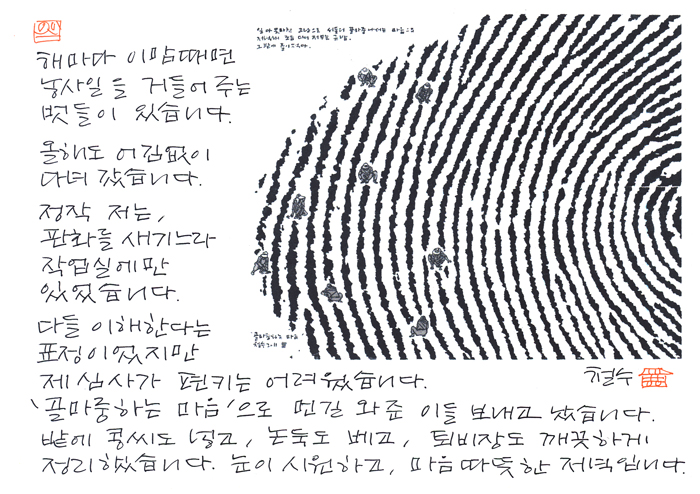 해마다 이맘때면
농사일을 거들어 주는
벗들이 있습니다.
올해도 어김없이
다녀 갔습니다.
정작 저는,
판화를 새기느라
작업실에만
있었습니다.
다들 이해한다는
표정이었지만
제 심사가 편키는 어려웠습니다.
'꼴마중하는 마음'으로 먼길 와준 이들 보내고 났습니다.
밭에 콩씨도 넣고, 논둑도 베고, 퇴비장도 깨끗하게
정리했습니다. 눈이 시원하고, 마음 따뜻한 저녁입니다.
철수